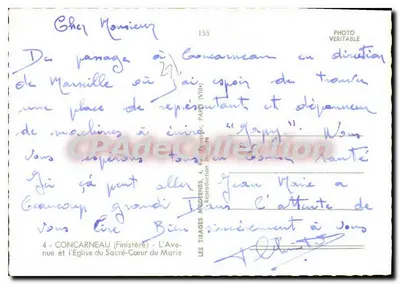 Cher Monsieur
155
PHOTO
VERITABLE
De passage à Concarneau en direction
de Marseille où j'ai espoir de trouver
une place de représentant et dépanneur
de machines à
Nous
vous espérons tous en bonne santé
ça peut aller Jean Marie a
beaucoup grandi Dans l'attente de
vous lire Bien sincèrement à vous
4 - CONCARNEAU (Finistère) - L'Ave-
nue et l'Eglise du Sacré-Cœur de Marie
LES TIRAGES MODERNES, PARIS (VIIIe)
CPA Collection